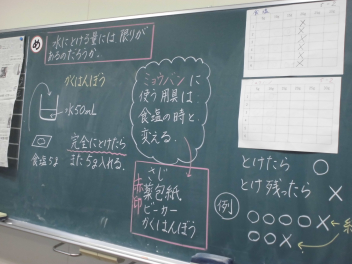 め
水にとける量には限りが
あるのだろうか。
がくはんぼう
水50mL
食塩5g
完全にとけたら
また5g入れる。
ミョウバンに
使う用具は
食塩の時と
変える。
赤印
さじ
薬包紙
ビーカー
がくはんぼう
とけたら ○
とけ残ったら ×
例
○○○○×
○○×